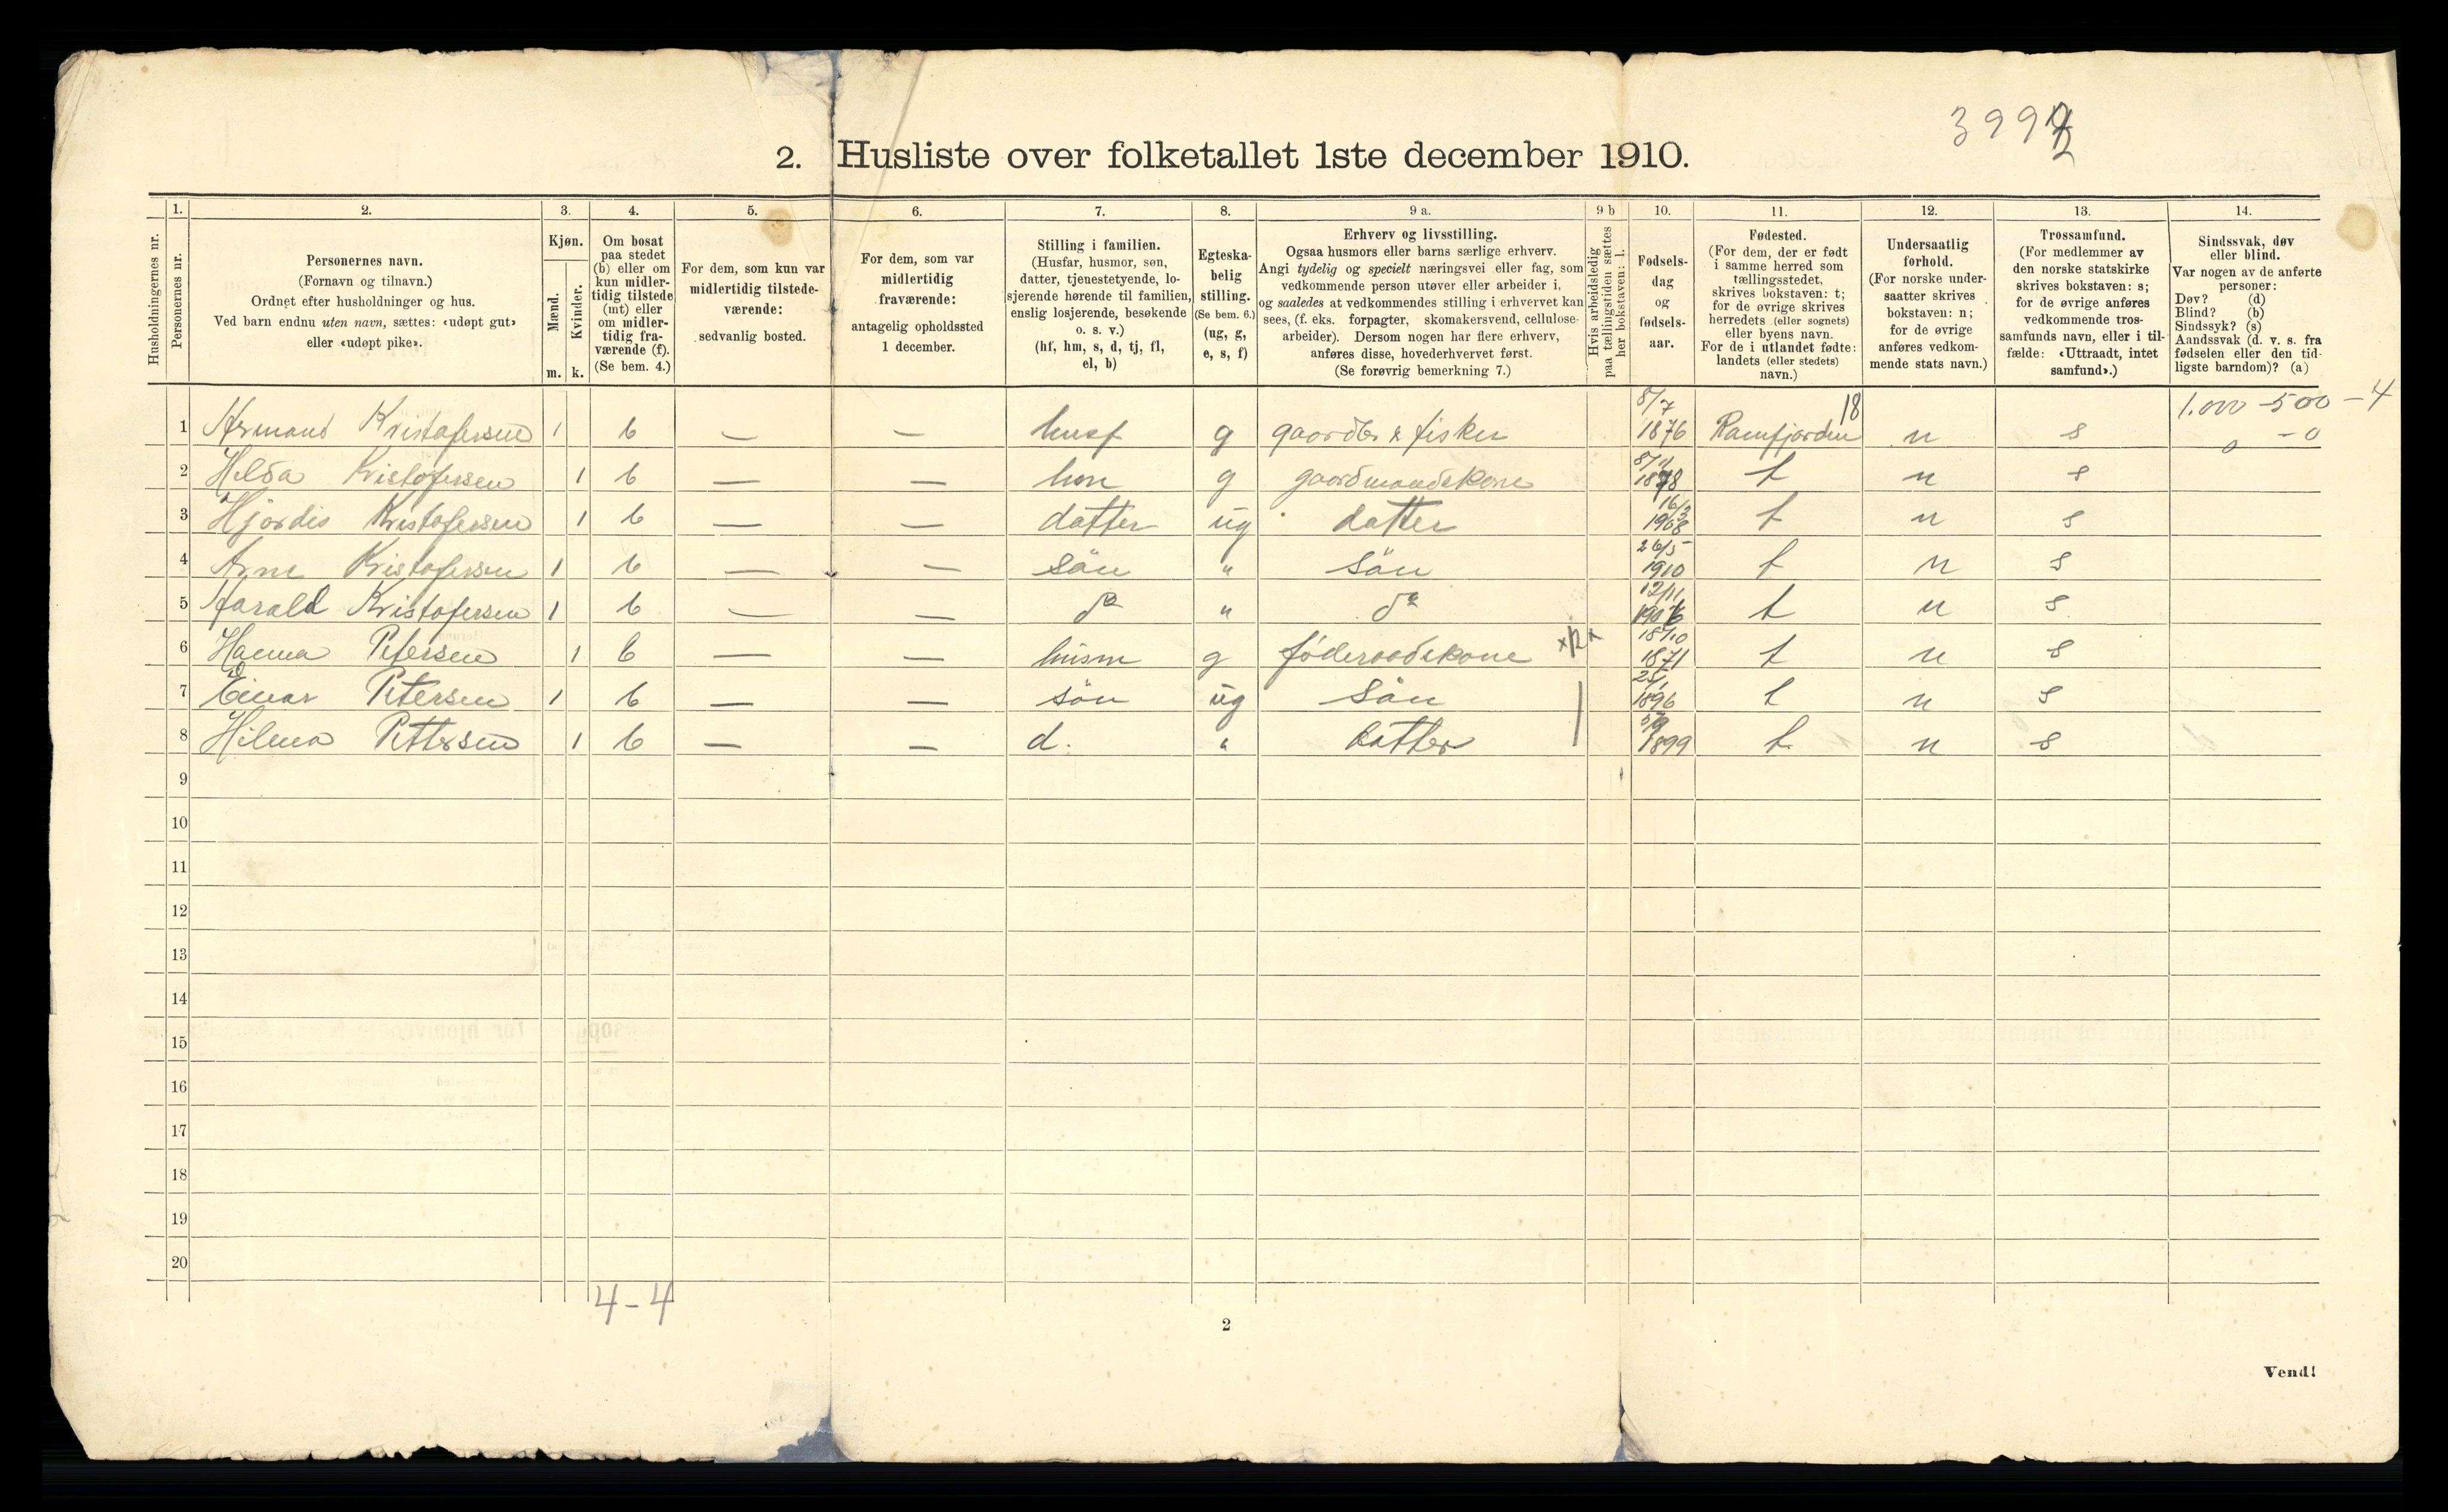 3992
2. Husliste over folketallet 1ste december 1910.
1. 2. 3. 4. 5. 6. 7. 8. 9 a. 9 b 10. 11. 12. 13. 14.
Husholdningernes nr.
Personernes nr.
Personernes navn.
(Fornavn og tilnavn.)
Ordnet efter husholdninger og hus.
Ved barn endnu uten navn, sættes: «udøpt gut»
eller «udøpt pike».
Kjøn.
Mænd.
Kvinder.
m. k.
Om bosat
paa stedet
(b) eller om
kun midler-
tidig tilstede
(mt) eller
om midler-
tidig fra-
værende (f).
(Se bem. 4.)
For dem, som kun var
midlertidig tilstede-
værende:
sedvanlig bosted.
For dem, som var
midlertidig
fraværende:
antagelig opholdssted
1 december.
Stilling i familien.
(Husfar, husmor, søn,
datter, tjenestetyende, lo-
sjerende hørende til familien,
enslig losjerende, besøkende
o. s. v.)
(hf, hm, s, d, tj, fl,
el, b)
Egteska-
belig
stilling.
(Se bem. 6.)
(ug, g,
e, s, f)
Erhverv og livsstilling.
Ogsaa husmors eller barns særlige erhverv.
Angi tydelig og specielt næringsvei eller fag, som
vedkommende person utøver eller arbeider i,
og saaledes at vedkommendes stilling i erhvervet kan
sees, (f. eks. forpagter, skomakersvend, cellulose-
arbeider). Dersom nogen har flere erhverv,
anføres disse, hovederhvervet først.
(Se forøvrig bemerkning 7.)
Hvis arbeidsledig
paa tællingstiden sættes
her bokstaven: l.
Fødsels-
dag
og
fødsels-
aar.
Fødested.
(For dem, der er født
i samme herred som
tællingsstedet,
skrives bokstaven: t;
for de øvrige skrives
herredets (eller sognets)
eller byens navn.
For de i utlandet fødte:
landets (eller stedets)
navn.)
Undersaatlig
forhold.
(For norske under-
saatter skrives
bokstaven: n;
for de øvrige
anføres vedkom-
mende stats navn.)
Trossamfund.
(For medlemmer av
den norske statskirke
skrives bokstaven: s;
for de øvrige anføres
vedkommende tros-
samfunds navn, eller i til-
fælde: «Uttraadt, intet
samfund».)
Sindssvak, døv
eller blind.
Var nogen av de anførte
personer:
Døv? (d)
Blind? (b)
Sindssyk? (s)
Aandssvak (d. v. s. fra
fødselen eller den tid-
ligste barndom)? (a)
8/7 18 1.000 - 500 - 4
1 Armand Kristofersen 1 b — — husf g gaardbr & fisker 1876 Ramfjorden n s 0 - 0
2 Hilda Kristofersen 1 b — — hm g gaardmandskone 8/11 1878 t n s
3 Hjørdis Kristofersen 1 b — — datter ug datter 16/3 1908 t n s
4 Arne Kristofersen 1 b — — sön " Sön 26/5 1910 t n s
5 Harald Kristofersen 1 b — — do " do 12/11 1906 t n s
6 Hanna Petersen 1 b — — husm g føderaadskone 18/10 1871 t n s
7 Einar Petersen 1 b — — sön ug Sön 25/1 1896 t n s
8 Hilma Pettersen 1 b — — d. " datter 5/9 1899 t n s
9
10
11
12
13
14
15
16
17
18
19
20
4 - 4
2
Vend!